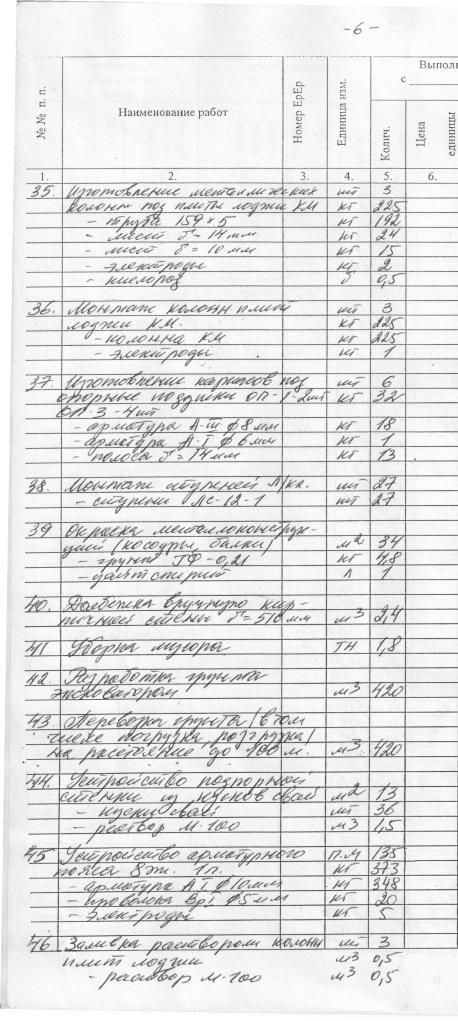 -6-
№ № п. п.
Наименование работ
Номер ЕрЕр
Единица изм.
Выполн
с
Колич.
Цена
единицы
1. 2. 3. 4. 5. 6.
35. Изготовление металлических шт 3
колонн под плиты лоджии КМ кг 225
- труба 159×5 кг 192
- лист δ=14мм кг 24
- лист δ=10мм кг 15
- электроды кг 2
- кислород б 0,5
36. Монтаж колонн плит шт 3
лоджии КМ. кг 225
- колонна КМ кг 225
- электроды кг 1
37. Изготовление каркасов под шт 6
опорные подушки ОП-1-2шт кг 32
ОП-3-4шт
- арматура А-III ф8мм кг 18
- арматура А-I ф6мм кг 1
- полоса δ=14мм кг 13
38. Монтаж ступеней Л/кл. шт 27
- ступени ЛС-12-1 шт 27
39 Окраска металлоконструк-
ций (косоуры, балки) м2 34
- грунт ГФ-0,21 кг 4,8
- уайтспирит л 1
40. Долбежка вручную кир-
пичной стены δ=510мм м3 2,4
41 Уборка мусора тн 1,8
42. Разработка грунта
экскаватором м3 420
43. Перевозка грунта (в том
числе погрузка, разгрузка)
на расстояние до 100 м. м3 420
44. Устройство подпорной
стенки из кусков свай м2 13
- куски свай шт 36
- раствор М-100 м3 1,5
45 Устройство арматурного п.м 135
пояса 8эт. 1п. кг 373
- арматура АI ф10мм кг 348
- проволока ВрI ф5мм кг 20
- электроды кг 5
46 Заливка раствором колонн шт 3
плит лоджии м3 0,5
- раствор М-100 м3 0,5